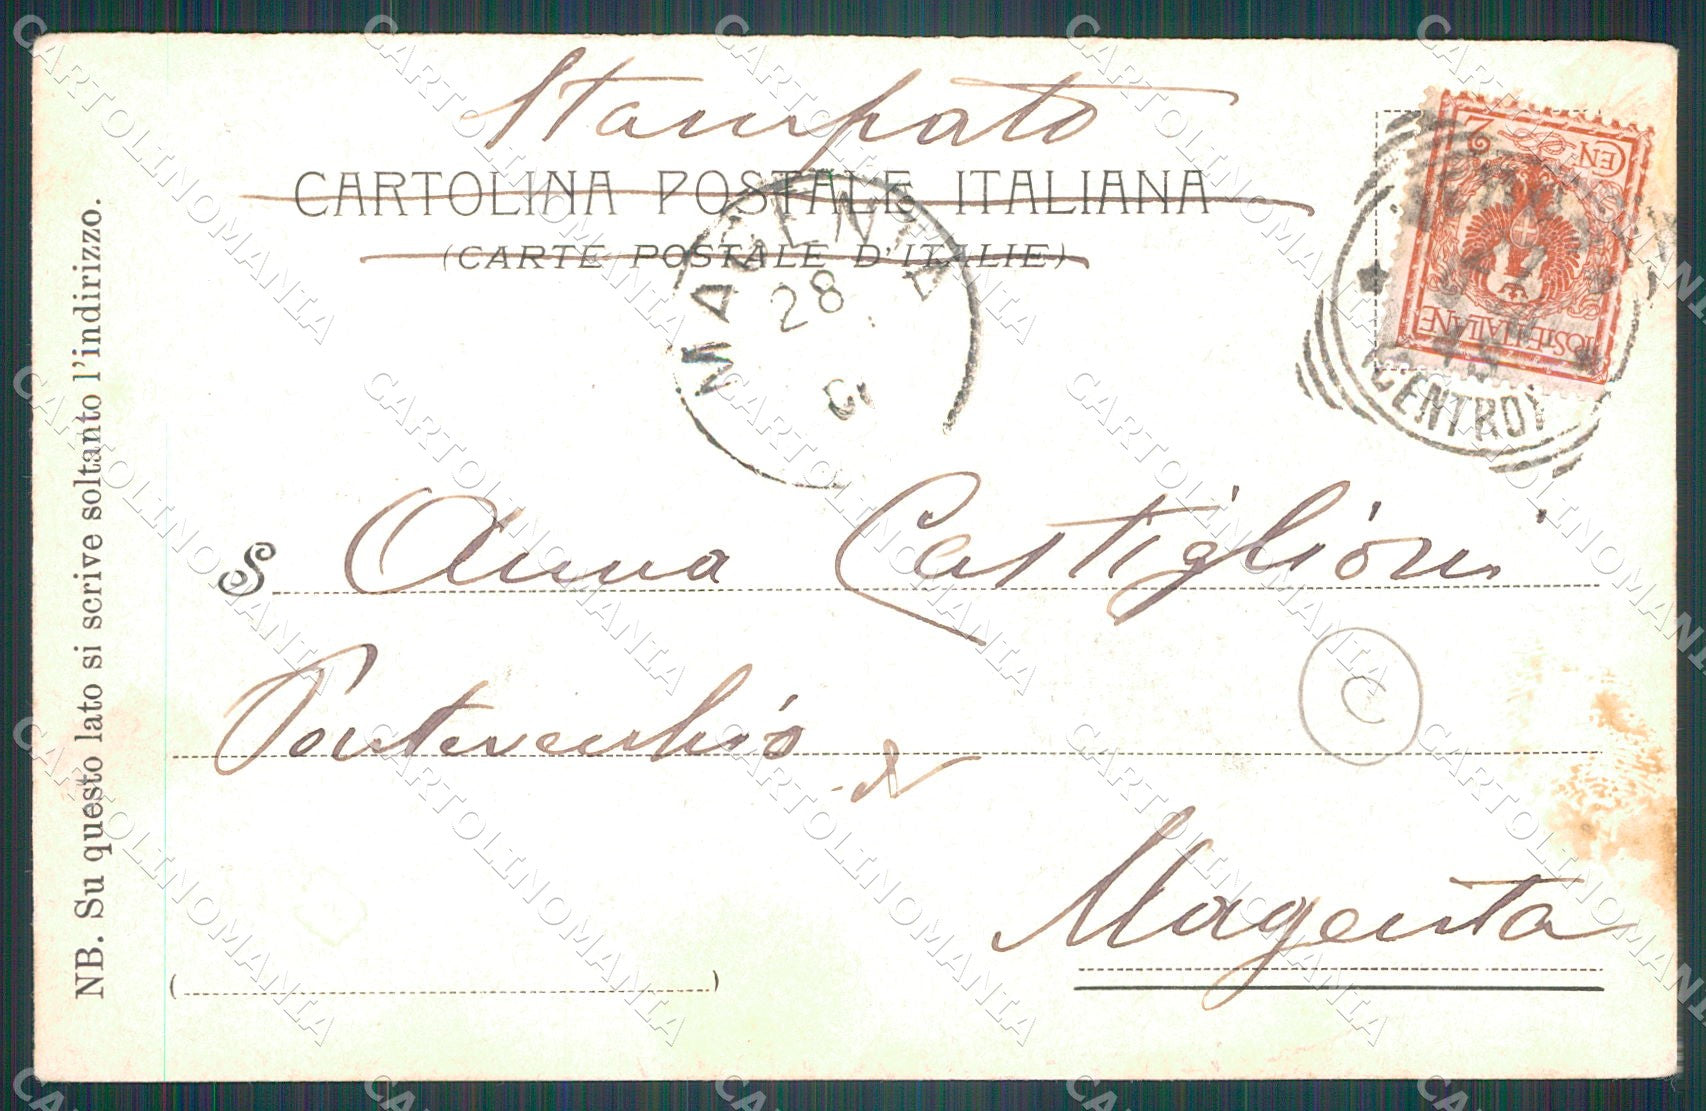 Stampato
CARTOLINA POSTALE ITALIANA
(CARTE POSTALE D'ITALIE)
MAGENTA
28
EN
POSTE ITALIANE
(CENTRO)
S Anna Castiglioni
Pontevecchio
C
Magenta
( )
NB. Su questo lato si scrive soltanto l'indirizzo.
CARTOLINOMANIA